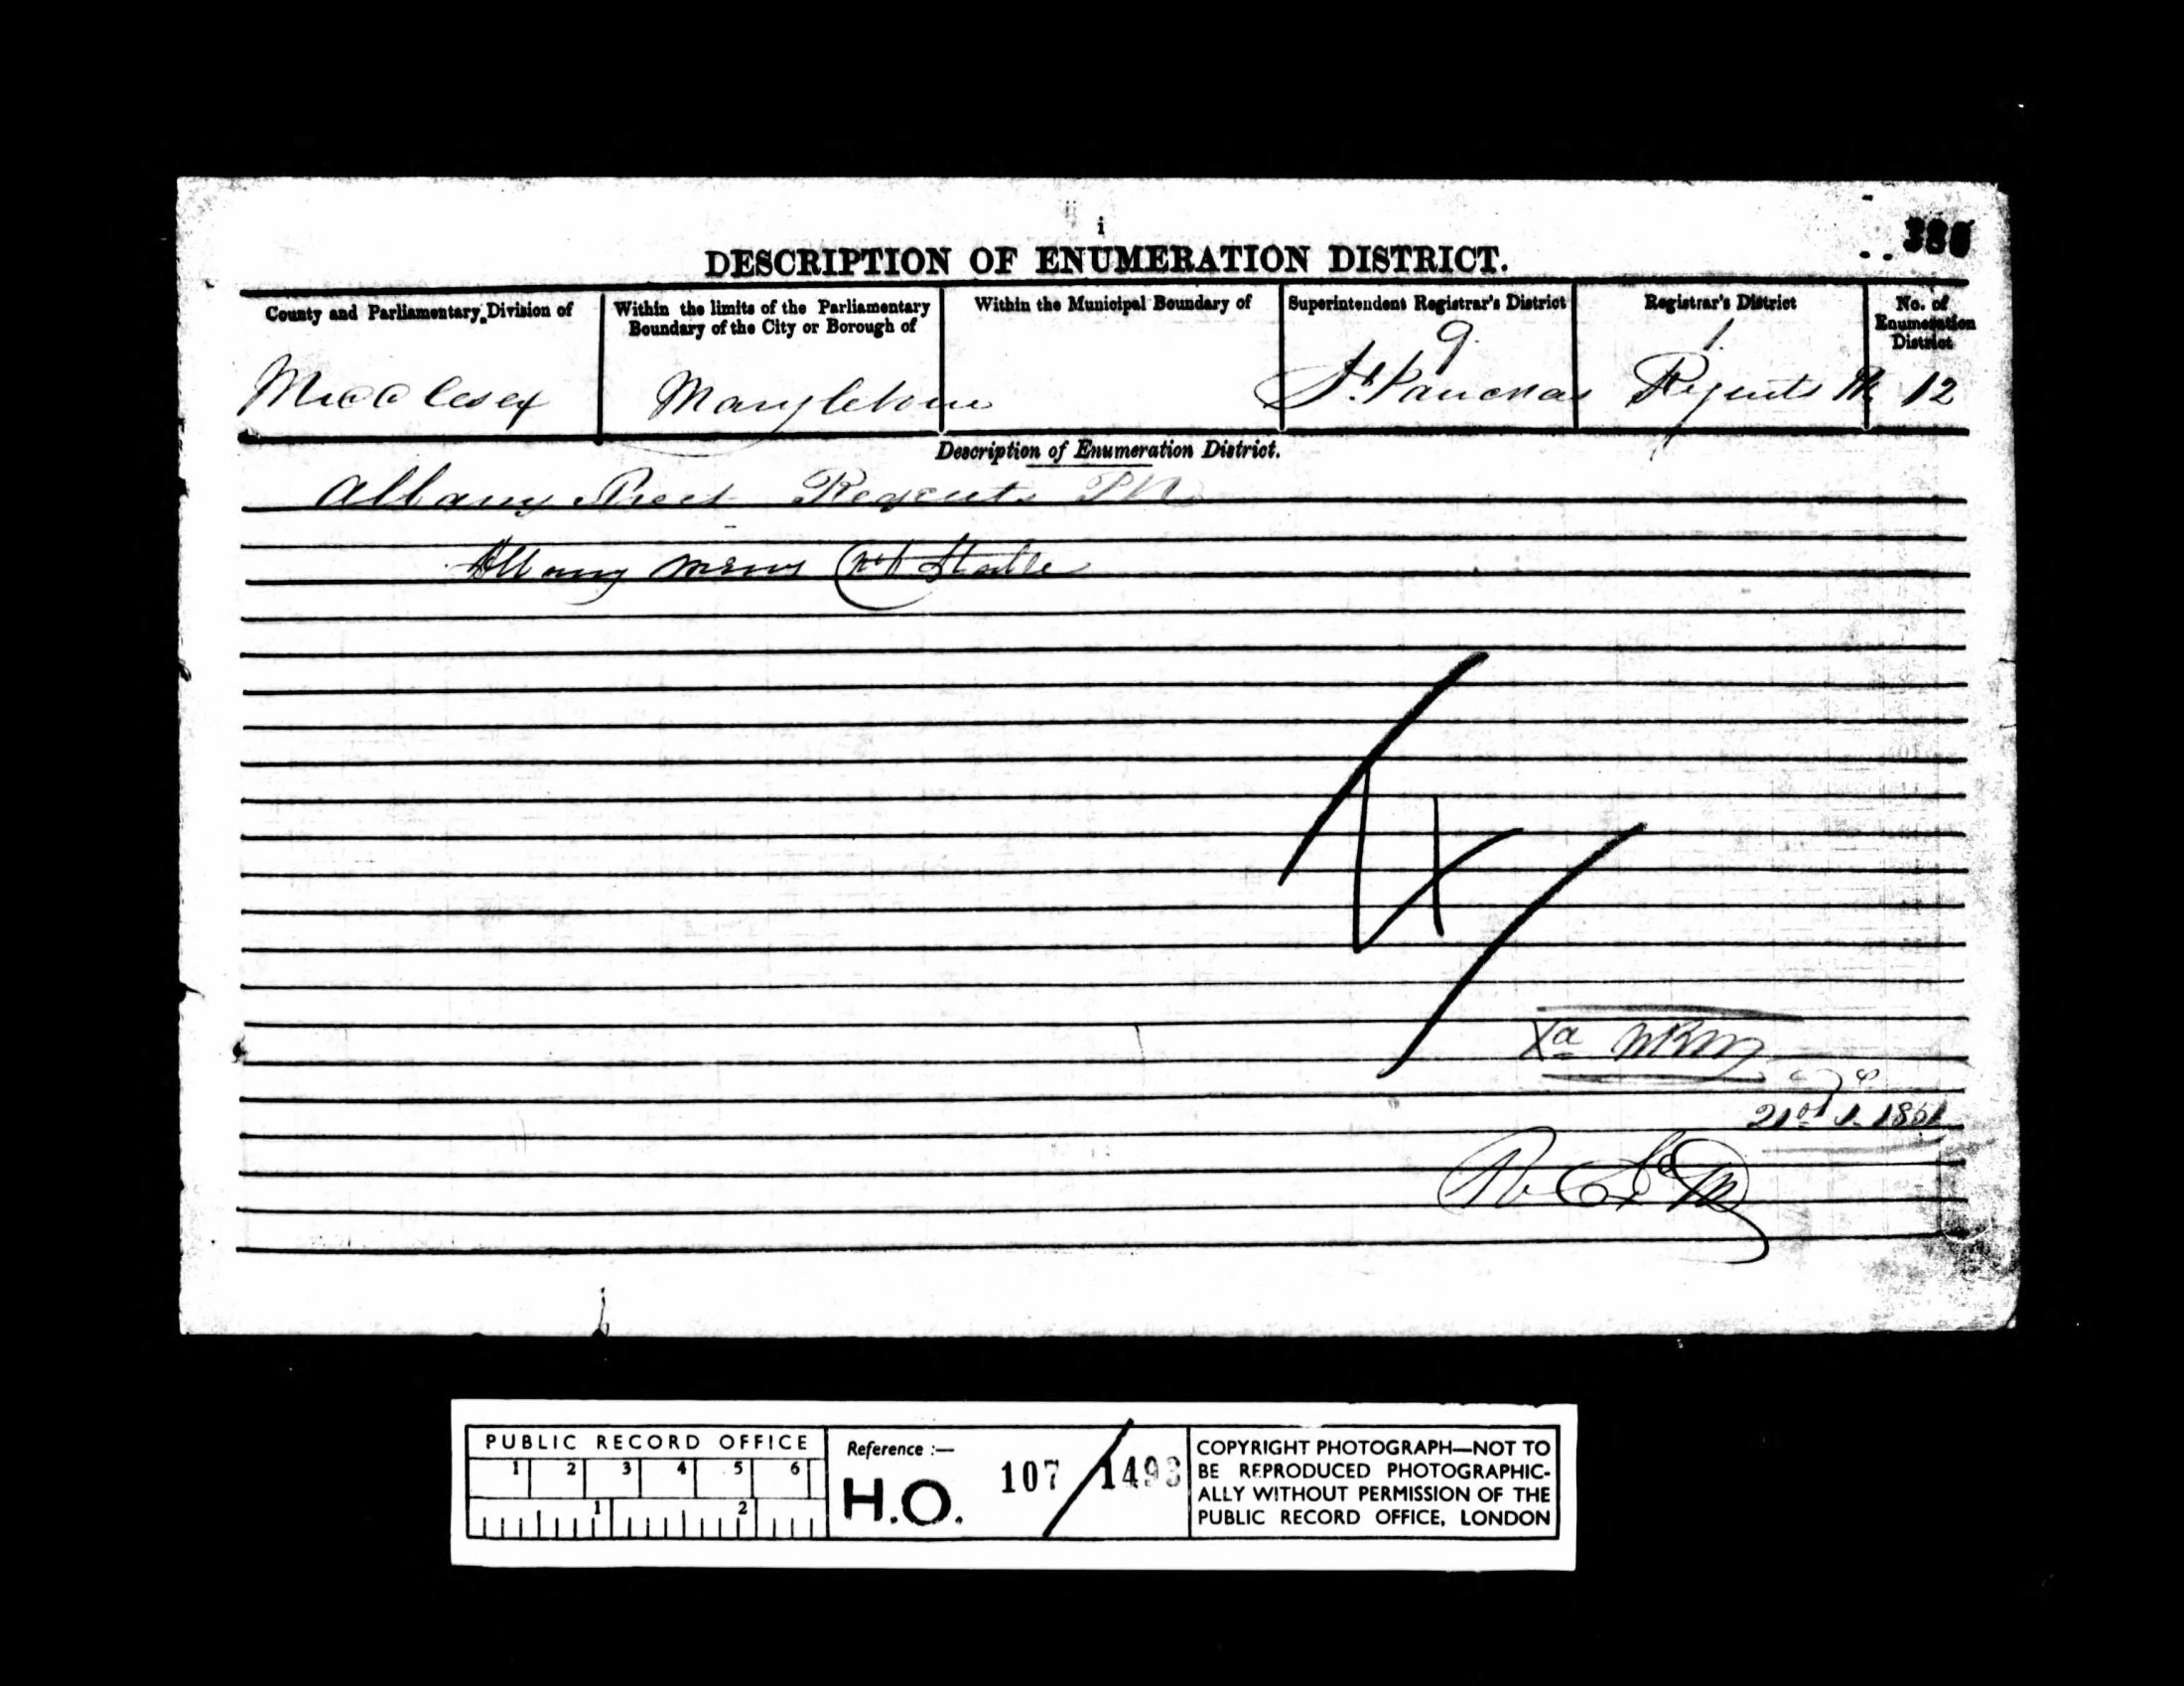 i
DESCRIPTION OF ENUMERATION DISTRICT.
County and Parliamentary Division of
Within the limits of the Parliamentary Boundary of the City or Borough of
Within the Municipal Boundary of
Superintendent Registrar's District
Registrar's District
No. of Enumeration District
9
1
Middlesex
Marylebone
St. Pancras
Regents Pk
12
Description of Enumeration District.
Albany Street Regents Pk
Albany Mews Stable
Xa
1851
PUBLIC RECORD OFFICE
1 2 3 4 5 6
1 2
Reference :—
H.O. 107/1493
COPYRIGHT PHOTOGRAPH—NOT TO
BE REPRODUCED PHOTOGRAPHIC-
ALLY WITHOUT PERMISSION OF THE
PUBLIC RECORD OFFICE, LONDON